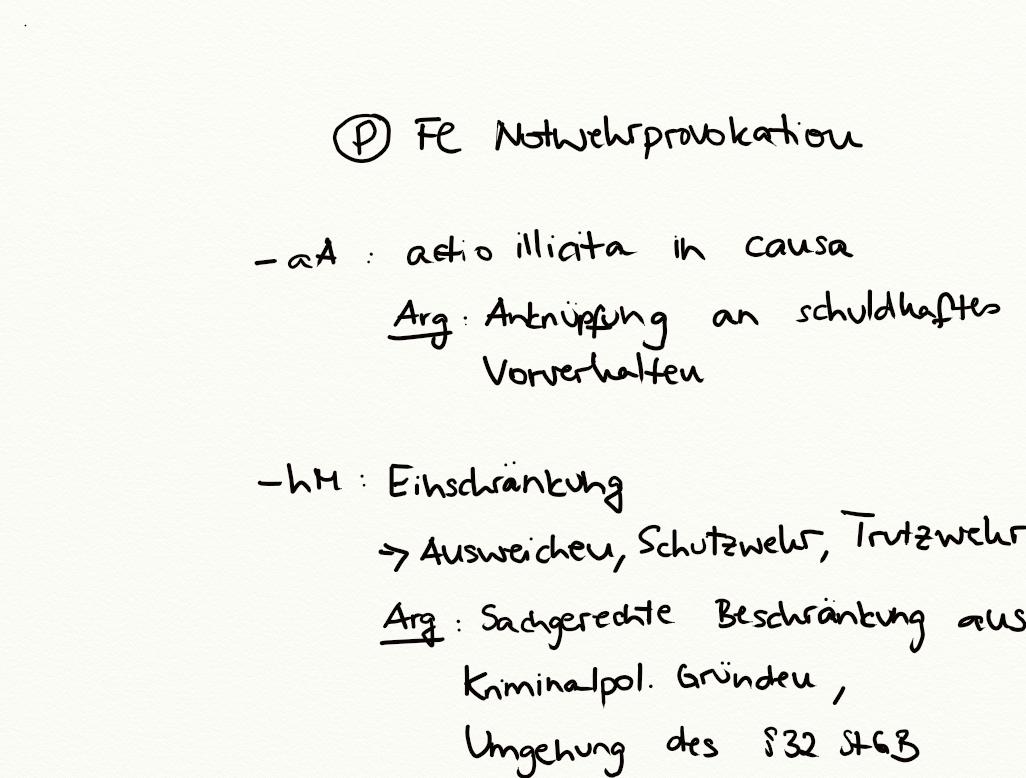 Ⓟ FE Notwehrprovokation
- aA : actio illicita in causa
Arg : Anknüpfung an schuldhaftes
Vorverhalten
- hM : Einschränkung
→ Ausweichen, Schutzwehr, Trutzwehr
Arg : Sachgerechte Beschränkung aus
Kriminalpol. Gründen ,
Umgehung des §32 StGB